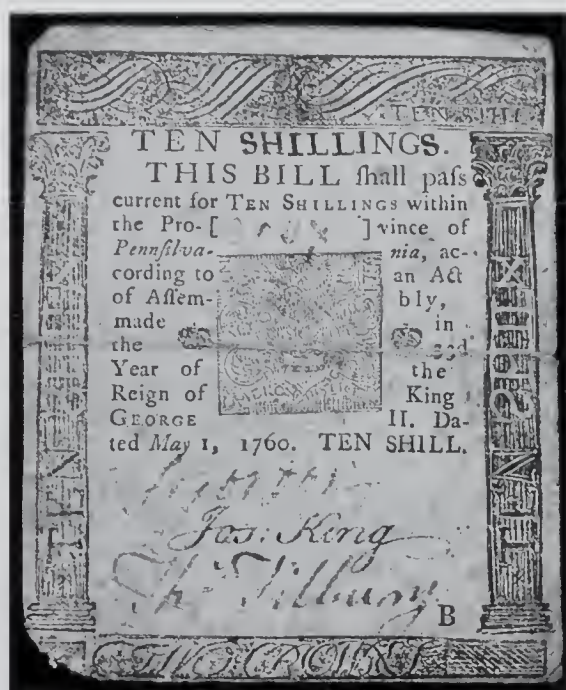 TEN SHILL
TEN SHILLINGS.
THIS BILL ſhall paſs
current for TEN SHILLINGS within
the Pro- [ ] vince of
Pennſilva- nia, ac-
cording to an Act
of Aſſem- bly,
made in
the
Year of the
Reign of King
GEORGE II. Da-
ted May 1, 1760. TEN SHILL.
Jos: King
Tho Tilbury
B